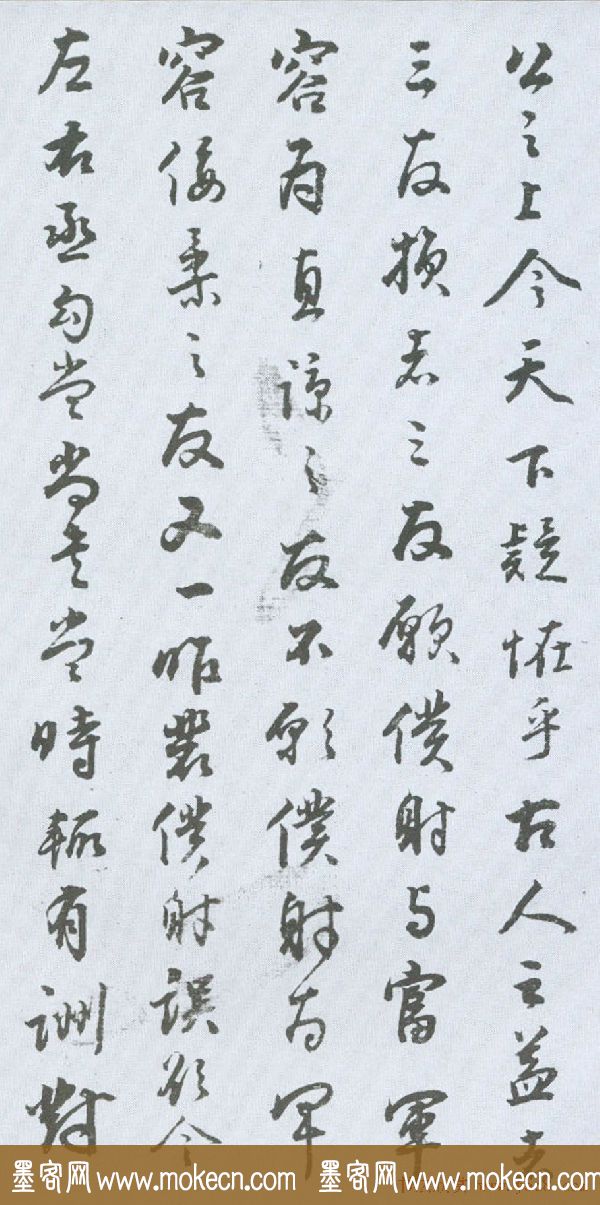 公之上令天下疑恠乎古人云益者
三友損者三友願僕射与富軍
容為直諒之友不願僕射為軍
容佞柔之友又一昨裴僕射誤欲令
左右丞勾當尚書當時輒有詶對
墨客网 www.mokecn.com 墨客网 www.mokecn.com